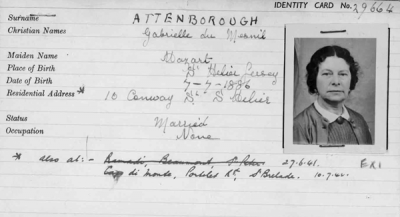 IDENTITY CARD No. 29664
Surname ATTENBOROUGH
Christian Names Gabrielle du Mesnil
Maiden Name Mozart
Place of Birth St Helier Jersey
Date of Birth 7-7-1886
Residential Address * 10 Conway St. St Helier
Status Married
Occupation None
* also at:- Beaumont, St Peter 27.6.41. EX1
di Monte, Portelet Rd, St Brelade. 10.7.42.